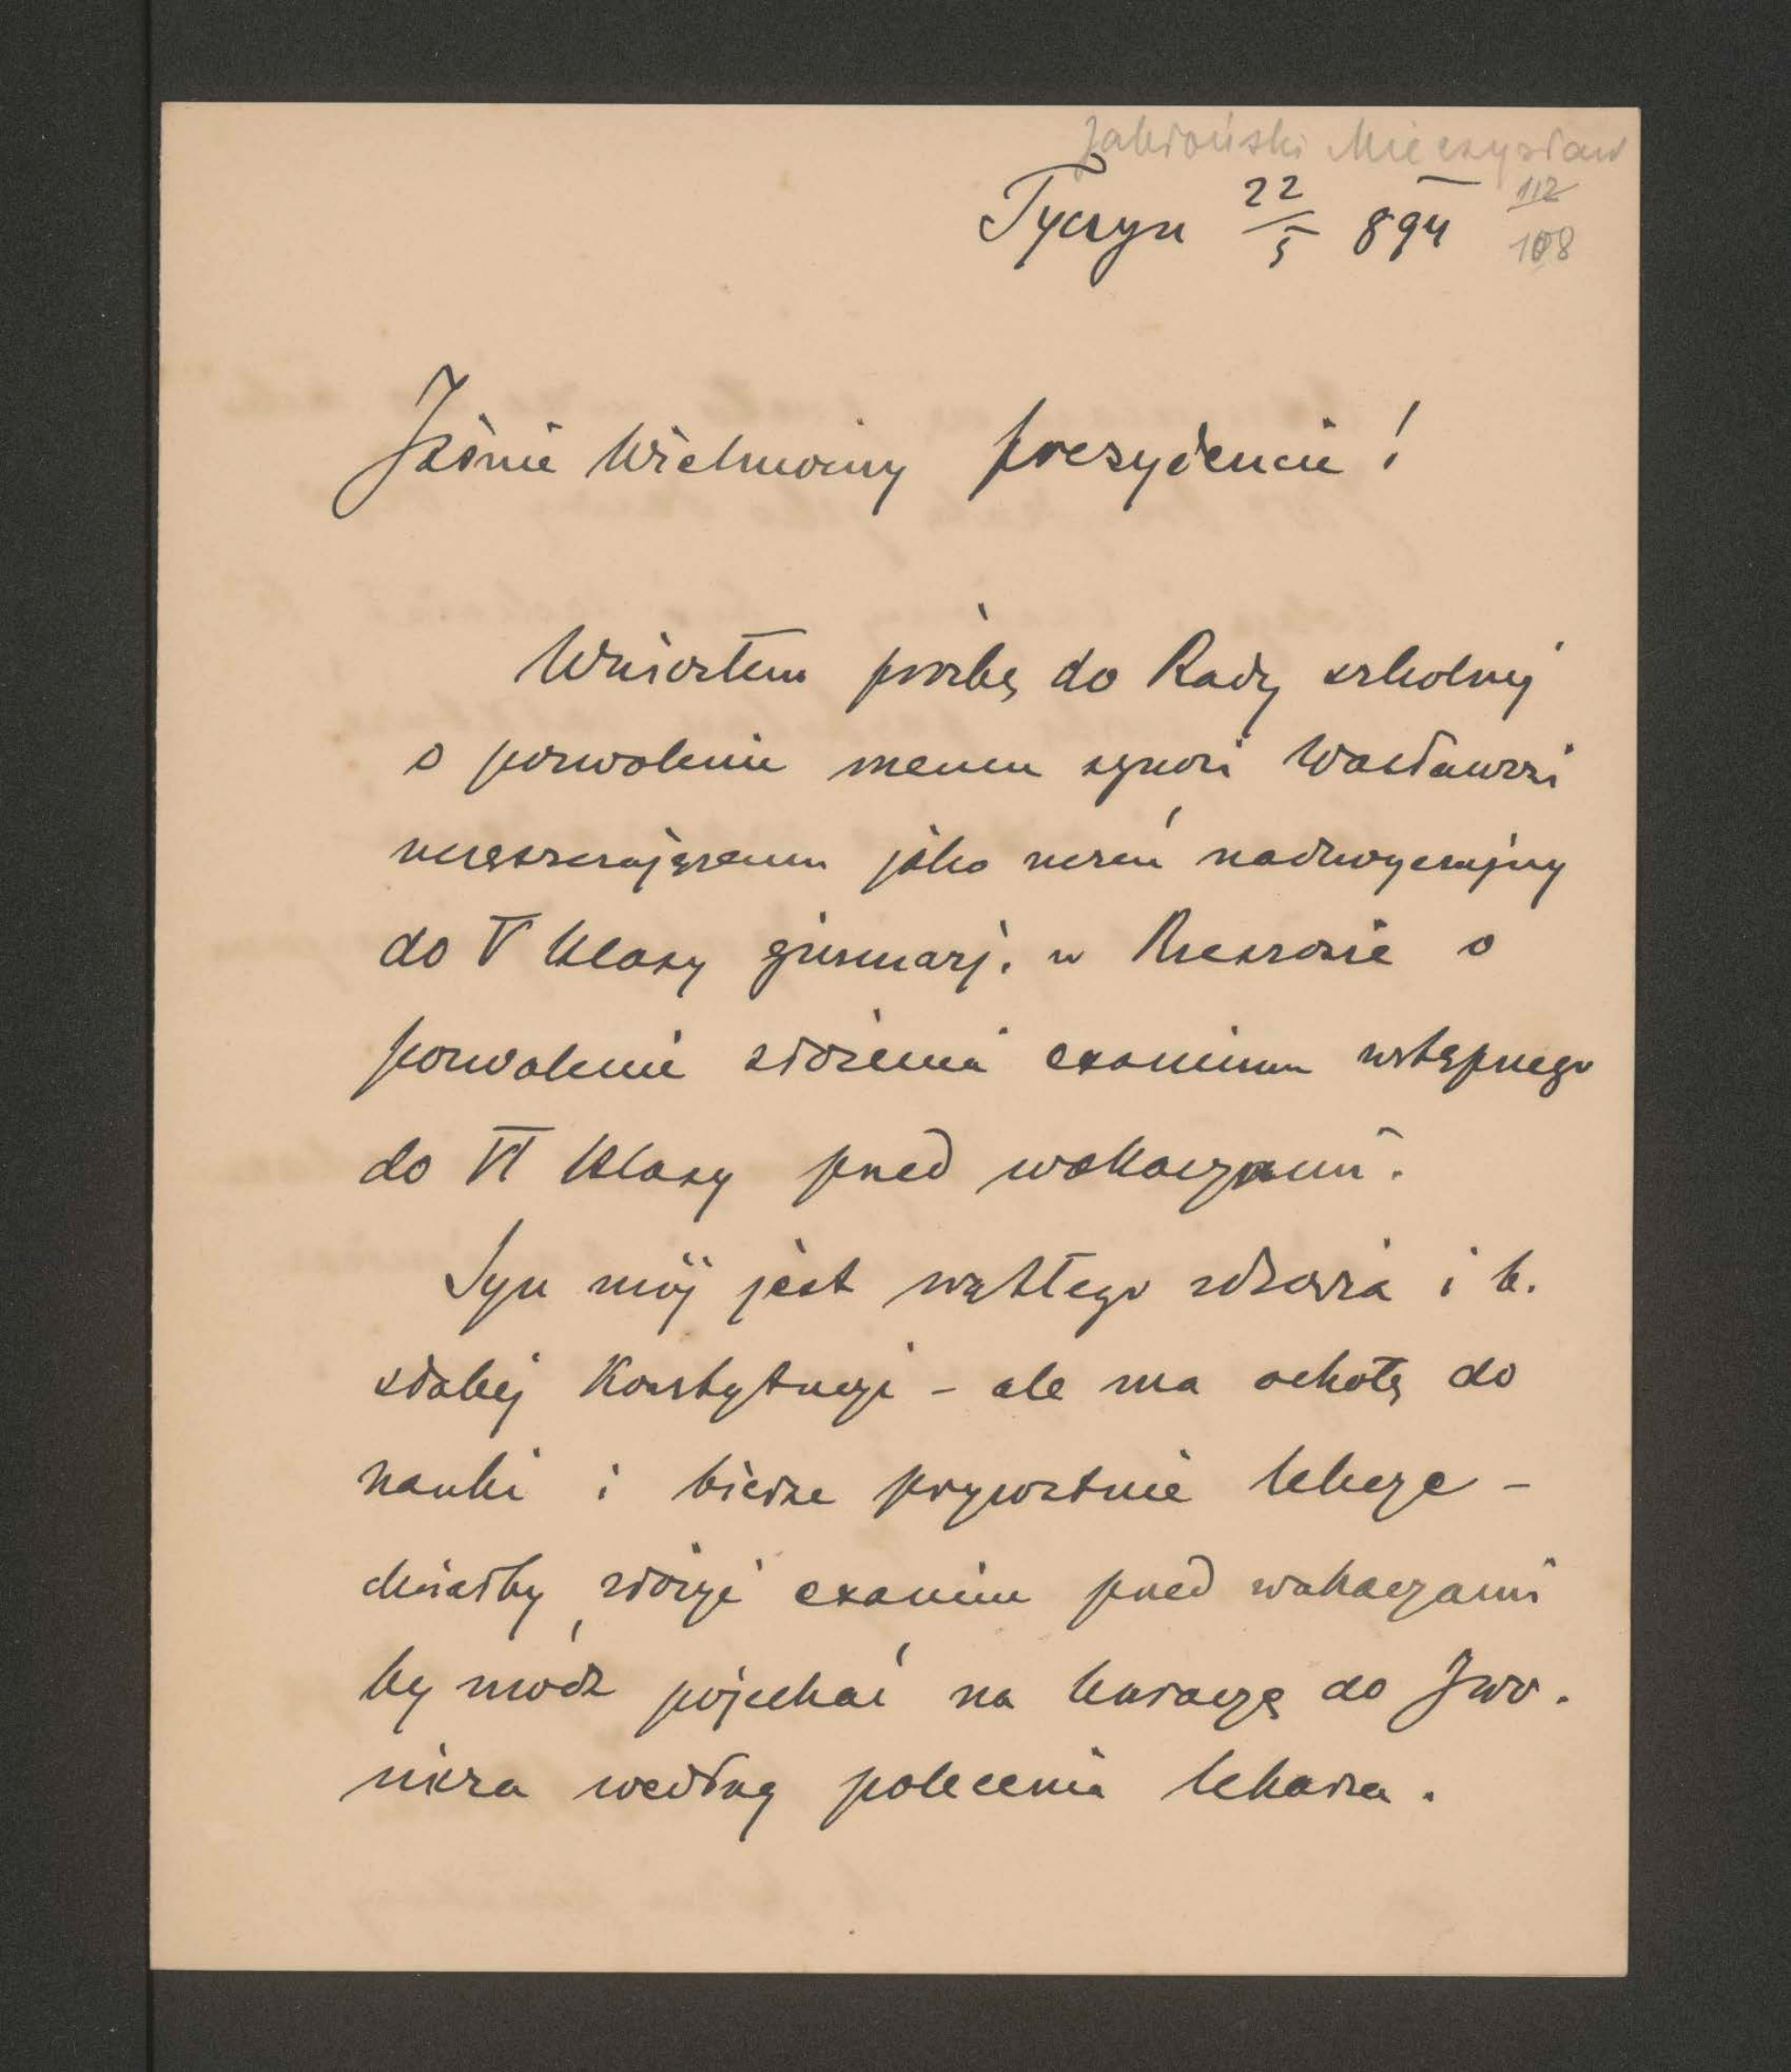 Jabłoński Mieczysław
Tyczyn 22/5 894
112
108
Jaśnie Wielmożny prezydencie!
Wniosłem prośbę do Rady szkolnej
o pozwolenie memu synowi Wacławowi
uczęszczającemu jako uczeń nadzwyczajny
do V klasy gimnazj. w Rzeszowie o
pozwolenie złożenia examinu wstępnego
do VI klasy przed wakacyami.
Syn mój jest wątłego zdrowia i b.
słabej konstytucyi - ale ma ochotę do
nauki i bierze prywatnie lekcye -
chciałby złożyć examin przed wakacyami
by módz pojechać na kuracyę do Iwo.
nicza według polecenia lekarza.